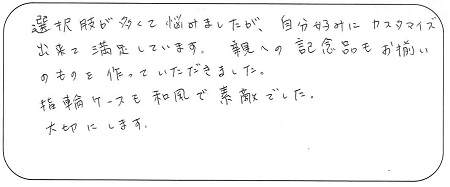 選択肢が多くて悩みましたが、自分好みにカスタマイズ
出来て満足しています。親への記念品もお揃い
のものを作っていただきました。
指輪ケースも和風で素敵でした。
大切にします。